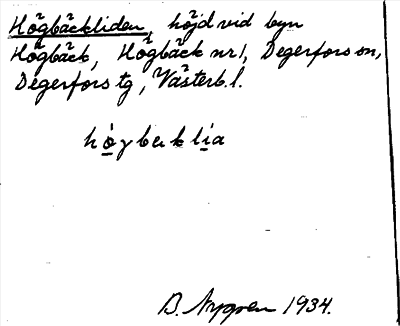 Högbäckliden, höjd vid byn
Högbäck, Högbäck nr 1, Degerfors sn,
Degerfors tg, Västerb. l.
hógbεklía
B. Nygren 1934.